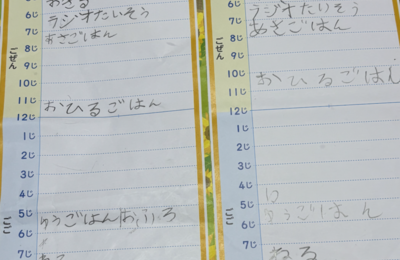 おきる
6じ ラジオたいそう
7じ あさごはん
8じ
ごぜん
9じ
10じ
11じ おひるごはん
12じ
1じ
2じ
3じ
4じ
ごご
5じ ゆうごはん おふろ
6じ
7じ ねる
6じ ラジオたいそう
7じ あさごはん
8じ
ごぜん
9じ
10じ おひるごはん
11じ
12じ
1じ
2じ
3じ
4じ
ごご
5じ ゆうごはん
6じ
7じ ねる